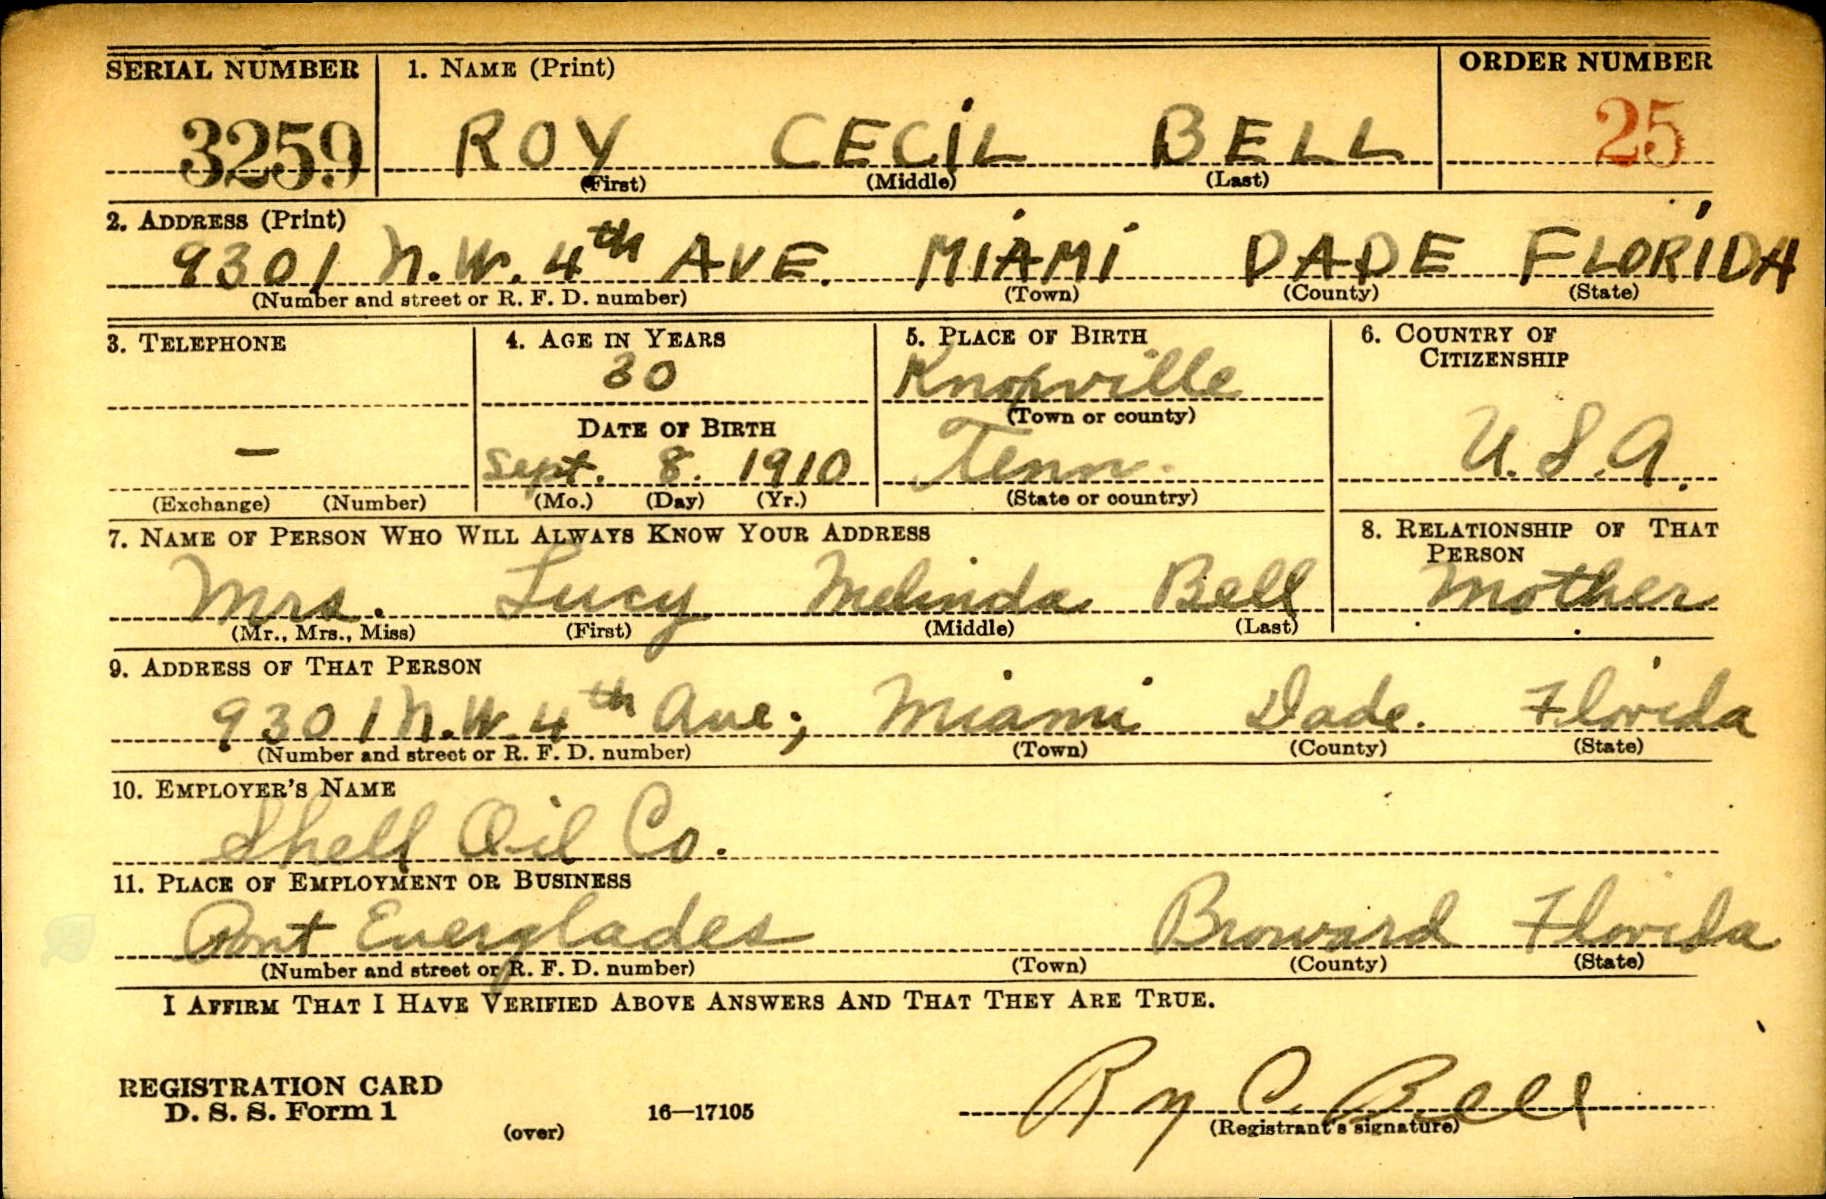 SERIAL NUMBER 1. NAME (Print) ORDER NUMBER
3259 ROY CECIL BELL 25
(First) (Middle) (Last)
2. ADDRESS (Print)
9301 N.W. 4th AVE. MIAMI DADE FLORIDA
(Number and street or R. F. D. number) (Town) (County) (State)
3. TELEPHONE 4. AGE IN YEARS 5. PLACE OF BIRTH 6. COUNTRY OF CITIZENSHIP
30 Knoxville
DATE OF BIRTH (Town or county)
– Sept. 8. 1910 Tenn. U.S.A.
(Exchange) (Number) (Mo.) (Day) (Yr.) (State or country)
7. NAME OF PERSON WHO WILL ALWAYS KNOW YOUR ADDRESS 8. RELATIONSHIP OF THAT PERSON
Mrs. Lucy Melinda Bell Mother
(Mr., Mrs., Miss) (First) (Middle) (Last)
9. ADDRESS OF THAT PERSON
9301 N.W. 4th Ave; Miami Dade. Florida
(Number and street or R. F. D. number) (Town) (County) (State)
10. EMPLOYER'S NAME
Shell Oil Co.
11. PLACE OF EMPLOYMENT OR BUSINESS
Port Everglades Broward Florida
(Number and street or R. F. D. number) (Town) (County) (State)
I AFFIRM THAT I HAVE VERIFIED ABOVE ANSWERS AND THAT THEY ARE TRUE.
REGISTRATION CARD
D. S. S. Form 1 16—17105 Roy C. Bell
(over) (Registrant's signature)